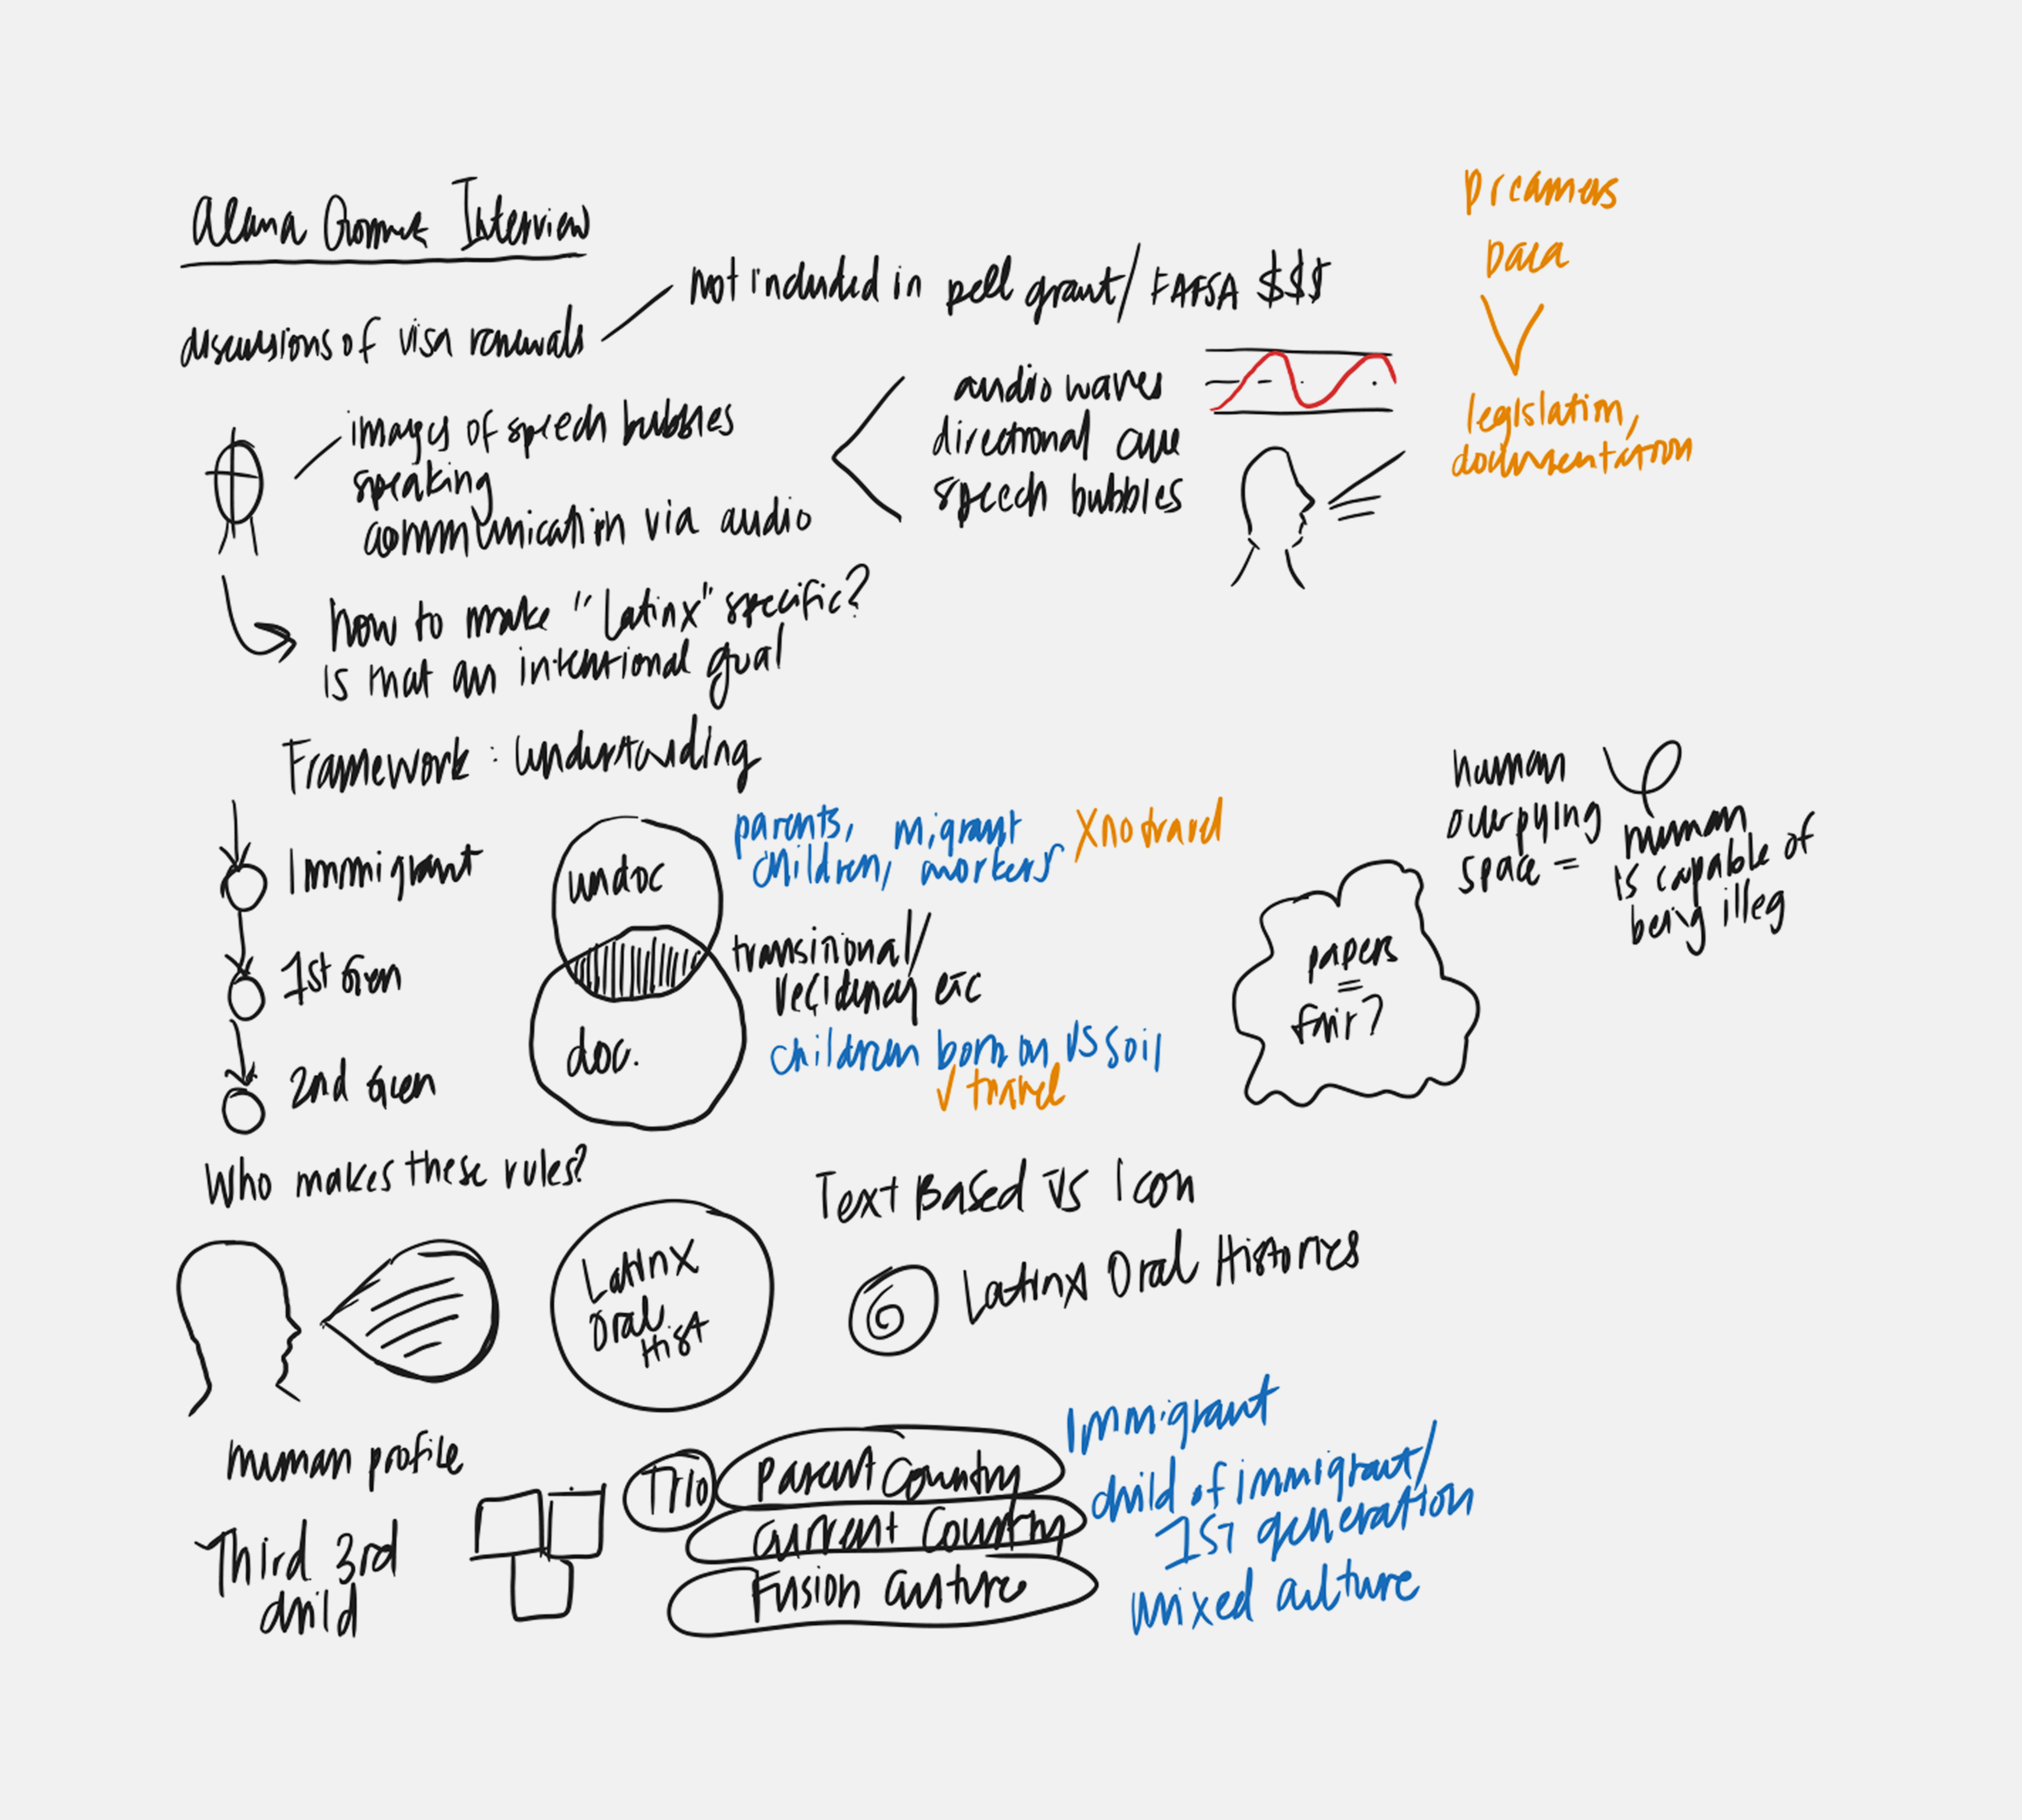 Interview
discussions of visa renewals
not included in pell grant/ FAFSA $$$
Dreamers
Daca
legislation,
documentation
images of speech bubbles
speaking
communication via audio
audio waves
directional cue
speech bubbles
how to make "Latinx" specific?
is that an intentional goal
Framework: understanding
Immigrant
1st Gen
2nd Gen
undoc
doc.
parents, migrant
children, workers
X no travel
transitional/
residency etc
children born on US soil
✓ travel
human
occupying
space =
human
is capable of
being illeg
papers
=
fair?
Who makes these rules?
Text Based vs Icon
Latinx
Oral
Hist
Latinx Oral Histories
human profile
Third 3rd
child
Trio
Parent Country
Current Country
Fusion Culture
Immigrant
child of immigrant/
1st generation
mixed culture